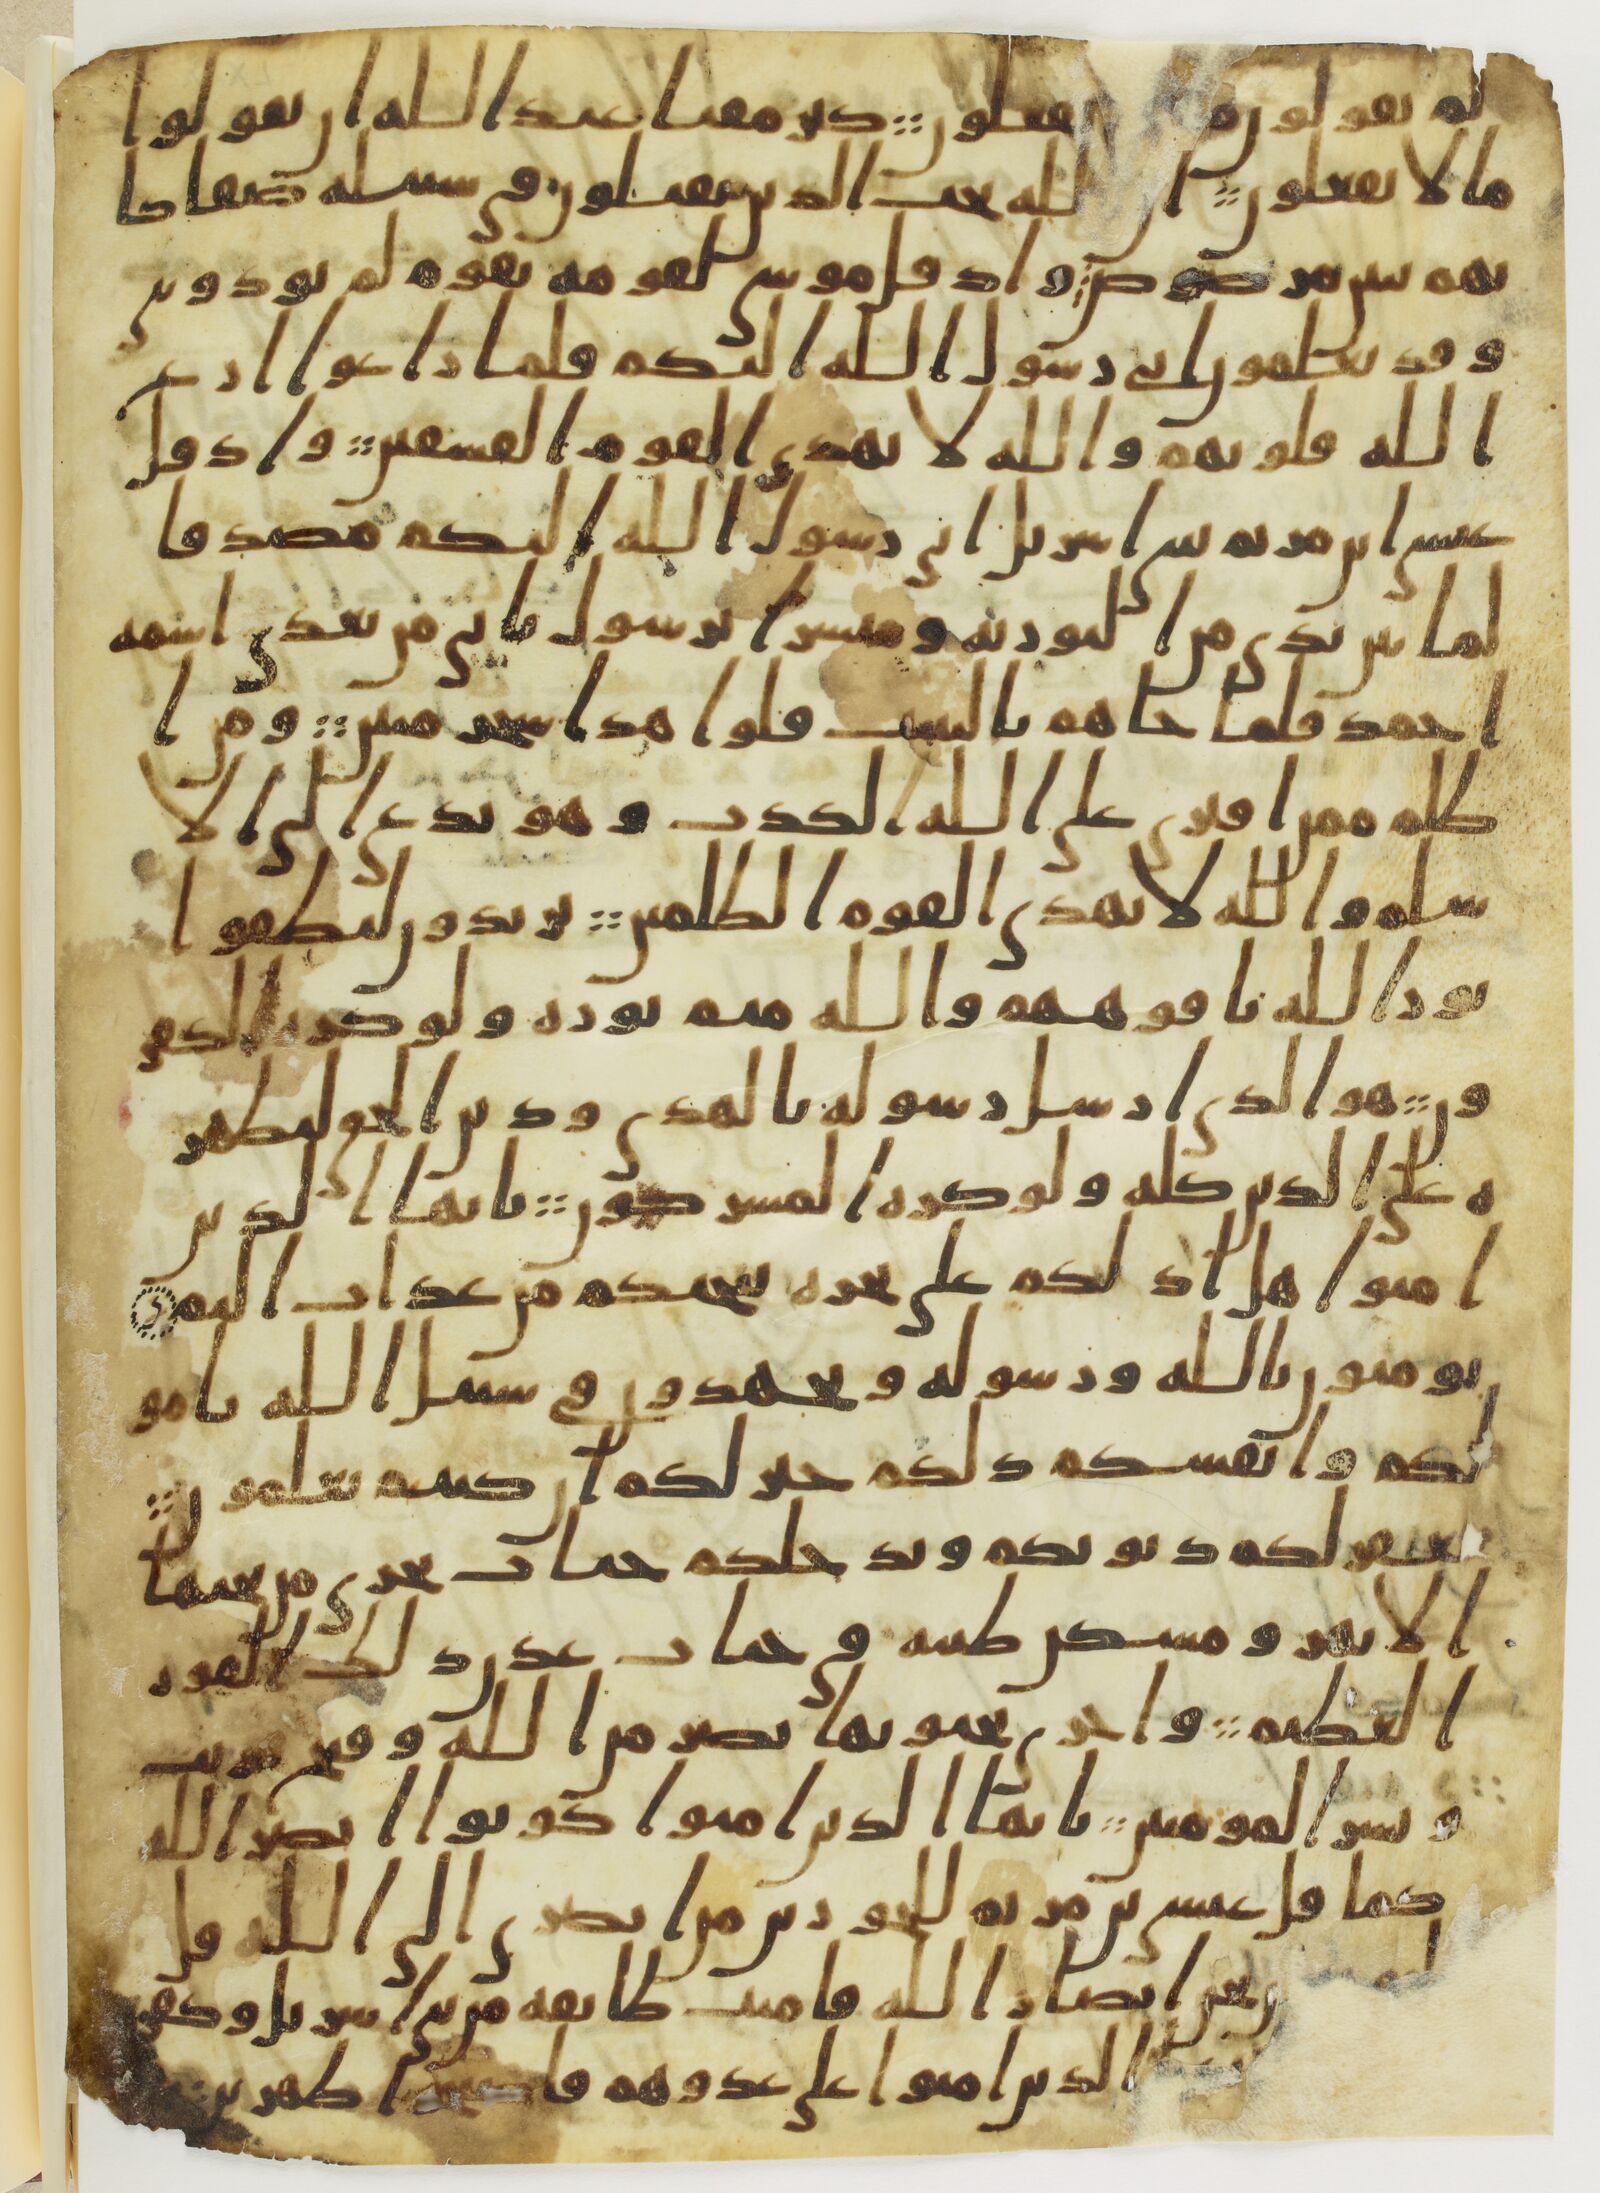 لم تقولون تفعلون كبر مقتا عند الله ان تقولوا
ما لا تفعلون ان الله يحب الذين يقتلون في سبيله صفا كا
نهم بنين مرصوص واذ قل موسى لقومه يقوم لم توذونني
وقد تعلمون اني رسول الله اليكم فلما زاغوا ازاغ
الله قلوبهم والله لا يهدي القوم الفسقين واذ قل
عيسى ابن مريم يبني اسريل اني رسول الله اليكم مصدقا
لما بين يدي من التوريه ومبشرا برسول ياتي من بعدي اسمه
احمد فلما جاهم بالبينت قلوا هذا سحر مبين ومن ا
ظلم ممن افترى على الله الكذب وهو يدعى الى الا
سلم والله لا يهدي القوم الظلمين يريدون ليطفوا
نور الله بافوههم والله متم نوره ولو كره الكفر
ون هو الذي ارسل رسوله بالهدى ودين الحق ليظهر
ه على الدين كله ولو كره المشركون يايها الذين
امنوا هل ادلكم على تجره تنجيكم من عذاب اليم
تومنون بالله ورسوله وتجهدون في سبيل الله بامو
لكم وانفسكم ذلكم خير لكم ان كنتم تعلمون
يغفر لكم ذنوبكم ويدخلكم جنات تجري من تحتها
الانهر ومسكن طيبه في جنات عدن ذلك الفوز
العظيم واخرى تحبونها نصر من الله وفتح قريب
وبشر المومنين يايها الذين امنوا كونوا انصر الله
كما قل عيسى بن مريم للحورين من انصري الى الله قل
نحن انصار الله فامنت طايفه من بني اسريل وكفر
الذين امنوا على عدوهم فاصبحوا ظهرين